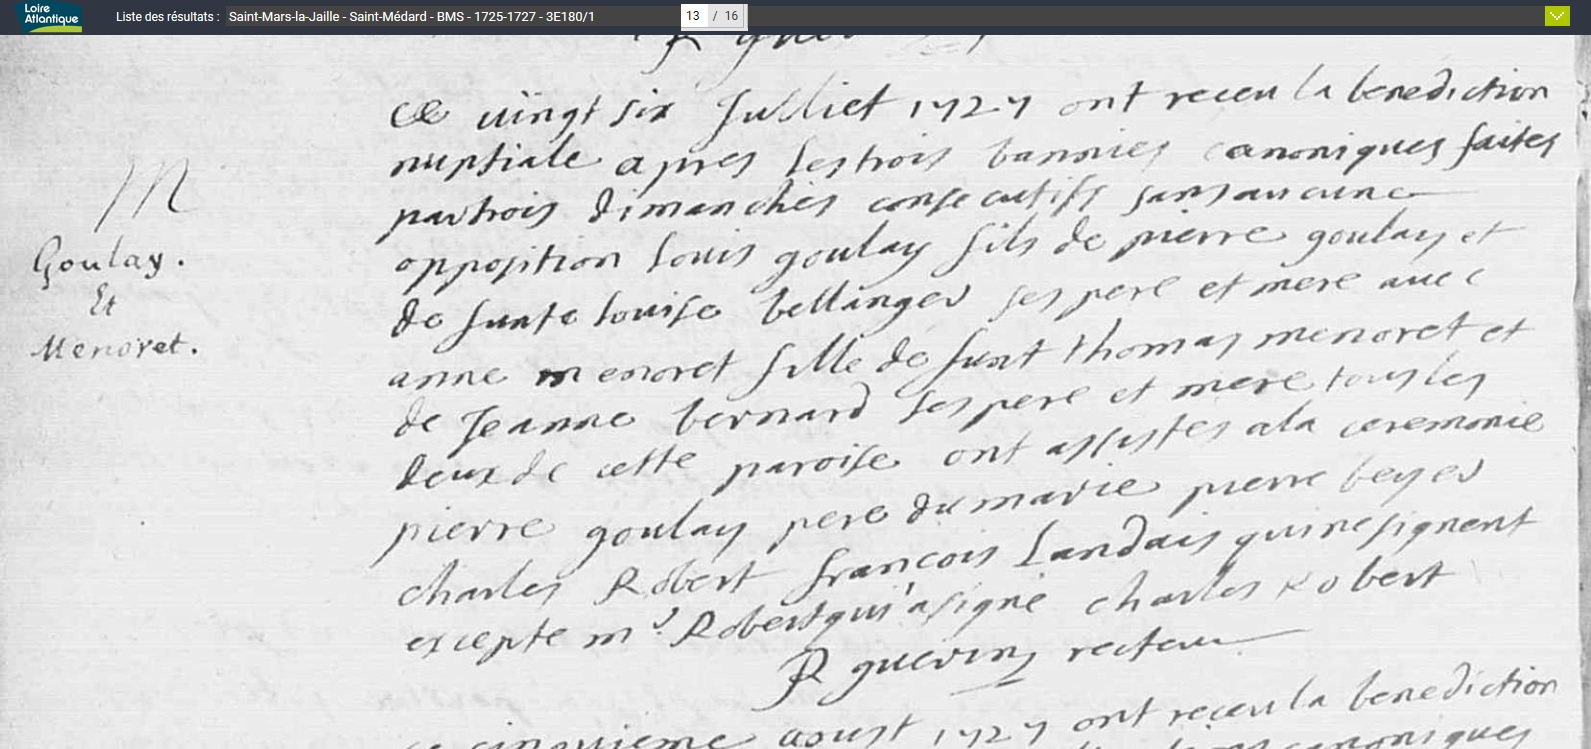 Loire
Atlantique
Liste des résultats : Saint-Mars-la-Jaille - Saint-Médard - BMS - 1725-1727 - 3E180/1
13 / 16
M
Goulay.
Et
Menoret.
ce vingt six Julliet 1727 ont receu la benediction
nuptiale apres les trois bannies canoniques faites
par trois dimanches consecutifs sans aucune
opposition louis goulay fils de pierre goulay et
de funte louise bellanger ses pere et mere avec
anne menoret fille de funt thomas menoret et
de Jeanne bernard ses pere et mere tous les
deux de cette paroise ont assistes a la ceremonie
pierre goulay pere du marie pierre beyer
charles Robert francois Landais qui ne signent
excepte mr Robert qui a signé charles Robert
R guerin recteur
ce cinquieme aoust 1727 ont receu la benediction
canoniques